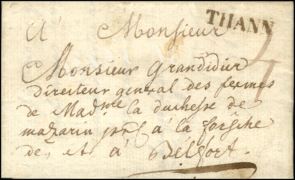 A Monsieur
THANN
Monsieur Grandidier
directeur general des fermes
de Madme la duchesse de
mazarin prés à la forsche
de et à Belfort